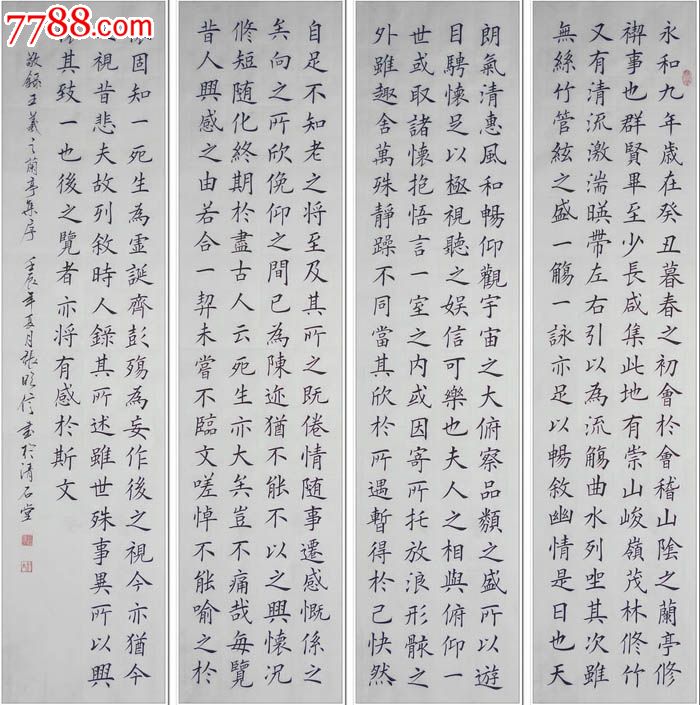 7788.com
永和九年歲在癸丑暮春之初會於會稽山陰之蘭亭修
禊事也群賢畢至少長咸集此地有崇山峻嶺茂林修竹
又有清流激湍暎帶左右引以為流觴曲水列坐其次雖
無絲竹管絃之盛一觴一詠亦足以暢敘幽情是日也天
朗氣清惠風和暢仰觀宇宙之大俯察品類之盛所以遊
目騁懷足以極視聽之娛信可樂也夫人之相與俯仰一
世或取諸懷抱悟言一室之內或因寄所托放浪形骸之
外雖趣舍萬殊靜躁不同當其欣於所遇暫得於己快然
自足不知老之將至及其所之既倦情隨事遷感慨係之
矣向之所欣俛仰之間已為陳迹猶不能不以之興懷況
修短隨化終期於盡古人云死生亦大矣豈不痛哉每覽
昔人興感之由若合一契未嘗不臨文嗟悼不能喻之於
固知一死生為虛誕齊彭殤為妄作後之視今亦猶今
視昔悲夫故列敘時人錄其所述雖世殊事異所以興
其致一也後之覽者亦將有感於斯文
敬錄王羲之蘭亭集序 壬辰年夏月張信書於清石堂